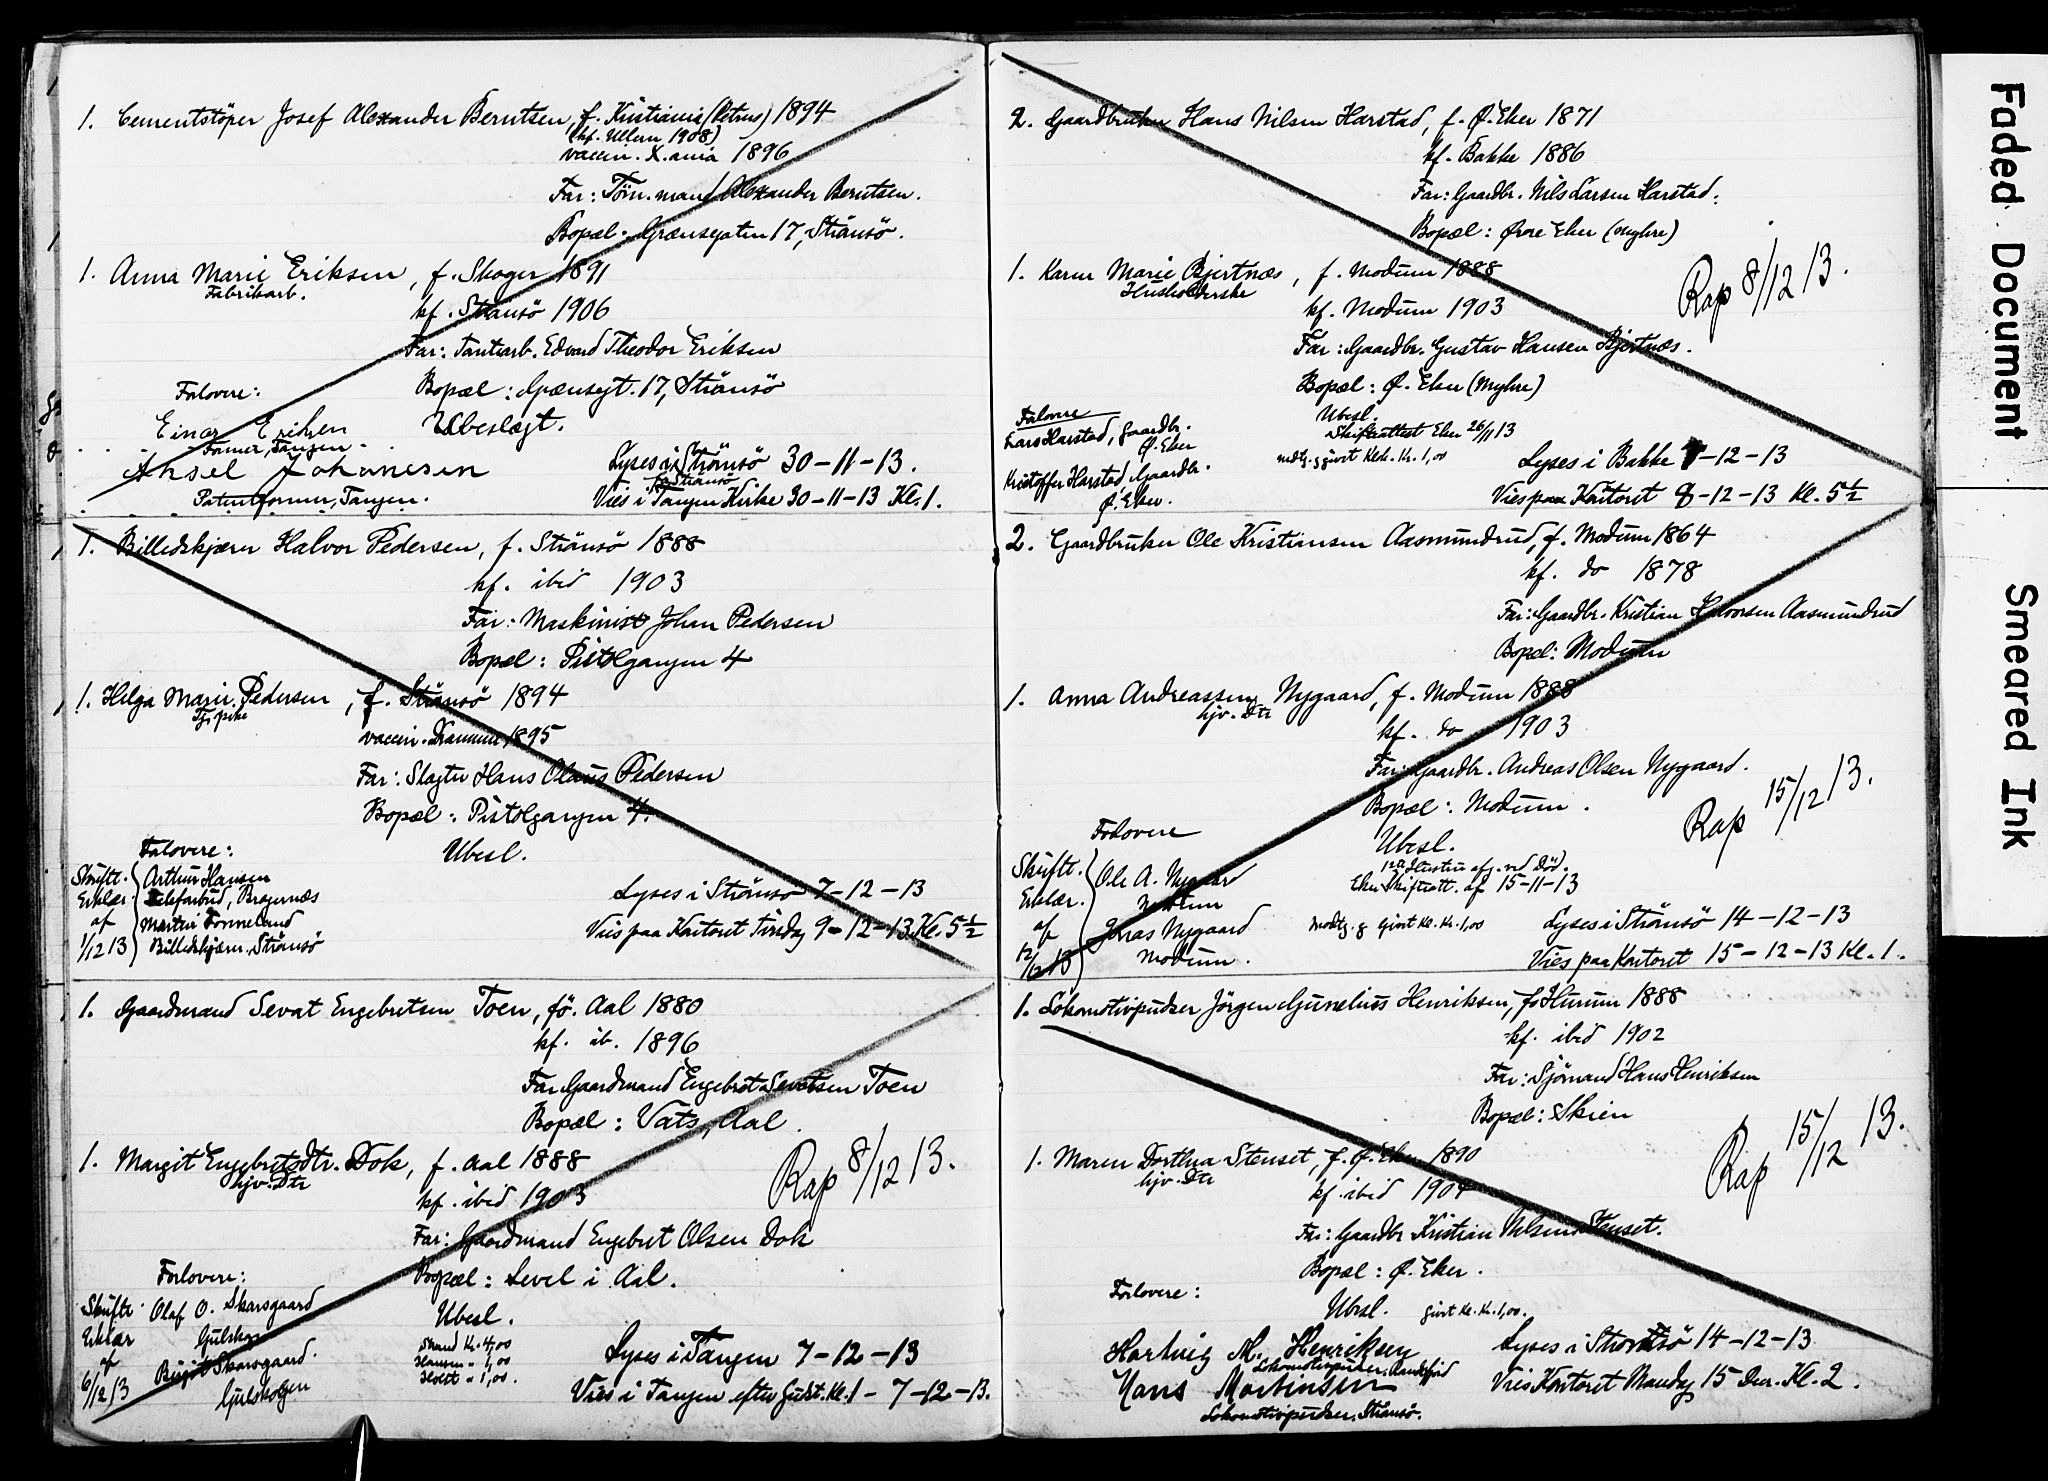 1. Cementstöper Josef Alexander Berntsen, f. Kristiania (Petrus) 1894
(kf. Ullern 1908)
vaccin. X.ania 1896
Far: Töm.mand Alexander Berntsen.
Bopæl: Grænsegaten 17, Strömsö.
1. Anna Marie Eriksen, f. Skoger 1891
Fabrikarb.
kf. Strömsö 1906
Far: Tomtearb. Edvard Theodor Eriksen
Forlovere:
Bopæl: Grænsegt. 17, Strömsö
Einar Eriksen
Ubeslægt.
Former, Tangen.
Aksel Johannesen
Lyses i Strömsö 30-11-13.
for Strömsö
Patentformer, Tangen.
Vies i Tangen Kirke 30-11-13 Kl. 1.
1. Billedskjærer Halvor Pedersen, f. Strömsö 1888
kf. ibid 1903
Far: Maskinist Johan Pedersen
Bopæl: Pistolgangen 4
1. Helga Marie Pedersen, f. Strömsö 1894
Tj.pike
vaccin. Drammen 1895
Far: Slagter Hans Olaus Pedersen
Bopæl: Pistolgangen 4.
Forlovere:
Ubesl.
Skriftl. Erklær. af 1/12 13
Arthur Hansen
Telefonbud, Bragernæs
Martin Tonneland
Billedskjærer, Strömsö
Lyses i Strömsö 7-12-13
Vies paa Kontoret Tirsdag 9-12-13. Kl. 5½
1. Gaardmand Sevat Engebretsen Toen, fö. Aal 1880
kf. ib. 1896
Far: Gaardmand Engebret Sevatsen Toen
Bopæl: Vats, Aal.
1. Margit Engebretsdtr. Dok, f. Aal 1888
hjv. Dtr
kf. ibid 1903
Rap 8/12 13.
Far: Gaardmand Engebret Olsen Dok
Forlovere:
Bopæl: Level i Aal.
Skriftl. Erklær af 6/12 13
Olaf O. Skarsgaard
Gulskogen
Birgit Skarsgaard.
Gulskogen
Ubesl.
Strand Kr. 4,00
Hansen " 1,00
" 1,00.
Lyses i Tangen 7-12-13
Vies i Tangen efter Gudst. Kl. 1 - 7-12-13.
2. Gaardbruker Hans Nilsen Harstad, f. Ø. Eker 1871
kf. Bakke 1886
Far: Gaardbr. Nils Larsen Harstad.
Bopæl: Øvre Eker (Myhre)
1. Karen Marie Bjertnæs, f. Modum 1888
Husholderske
kf. Modum 1903
Rap 8/12 13.
Far: Gaardbr. Gustav Hansen Bjertnæs.
Bopæl: Ø. Eker (Myhre)
Forlovere
Lars Harstad, Gaardbr.
Ø. Eker
Kristoffer Harstad Gaardbr.
Ø. Eker.
Ubesl.
Skifteattest Eker 26/11 13
modtg. g givet Klok. Kr. 1,00
Lyses i Bakke 7-12-13
Vies paa Kontoret 8-12-13 Kl. 5½
2. Gaardbruker Ole Kristiansen Aasmundrud, f. Modum 1864
kf. do 1878
Far: Gaardbr. Kristian Halvorsen Aasmundrud
Bopæl: Modum
1. Anna Andreassen Nygaard, f. Modum 1888
hjv. Dtr
kf. do 1903
Far: Gaardbr. Andreas Olsen Nygaard.
Bopæl: Modum.
Rap 15/12 13.
Forlovere
Ubesl.
Skriftl. Erklær. af 12/12 13
Ole A. Nygaard
Modum
Jonas Nygaard
Modum.
1ste Hustru afg. ved Död.
Eker Skifteatt. af 15-11-13
Modtg. g Givet Kl. Kr. 1,00
Lyses i Strömsö 14-12-13
Vies paa Kontoret 15-12-13 Kl. 1.
1. Lokomotivpudser Jörgen Gunelius Henriksen, fö Hurum 1888
kf. ibid 1902
Far: Sjömand Hans Henriksen
Bopæl: Skien
1. Maren Dorthea Stenset, f. Ø. Eker 1890
hjv. Dtr
kf. ibid 1904
Rap 15/12 13.
Far: Gaardbr Kristian Nilsen Stenset.
Bopæl: Ø. Eker.
Forlovere:
Ubesl. givet Kl. Kr. 1,00.
Hartvig M. Henriksen
Lokomotivpudser, Sandefjord
Hans Martinsen
Lokomotivpudser, Strömsö.
Lyses i Strömsö 14-12-13
Vies Kontoret Mandag 15 Dec. Kl. 2.
Faded Document
Smeared Ink